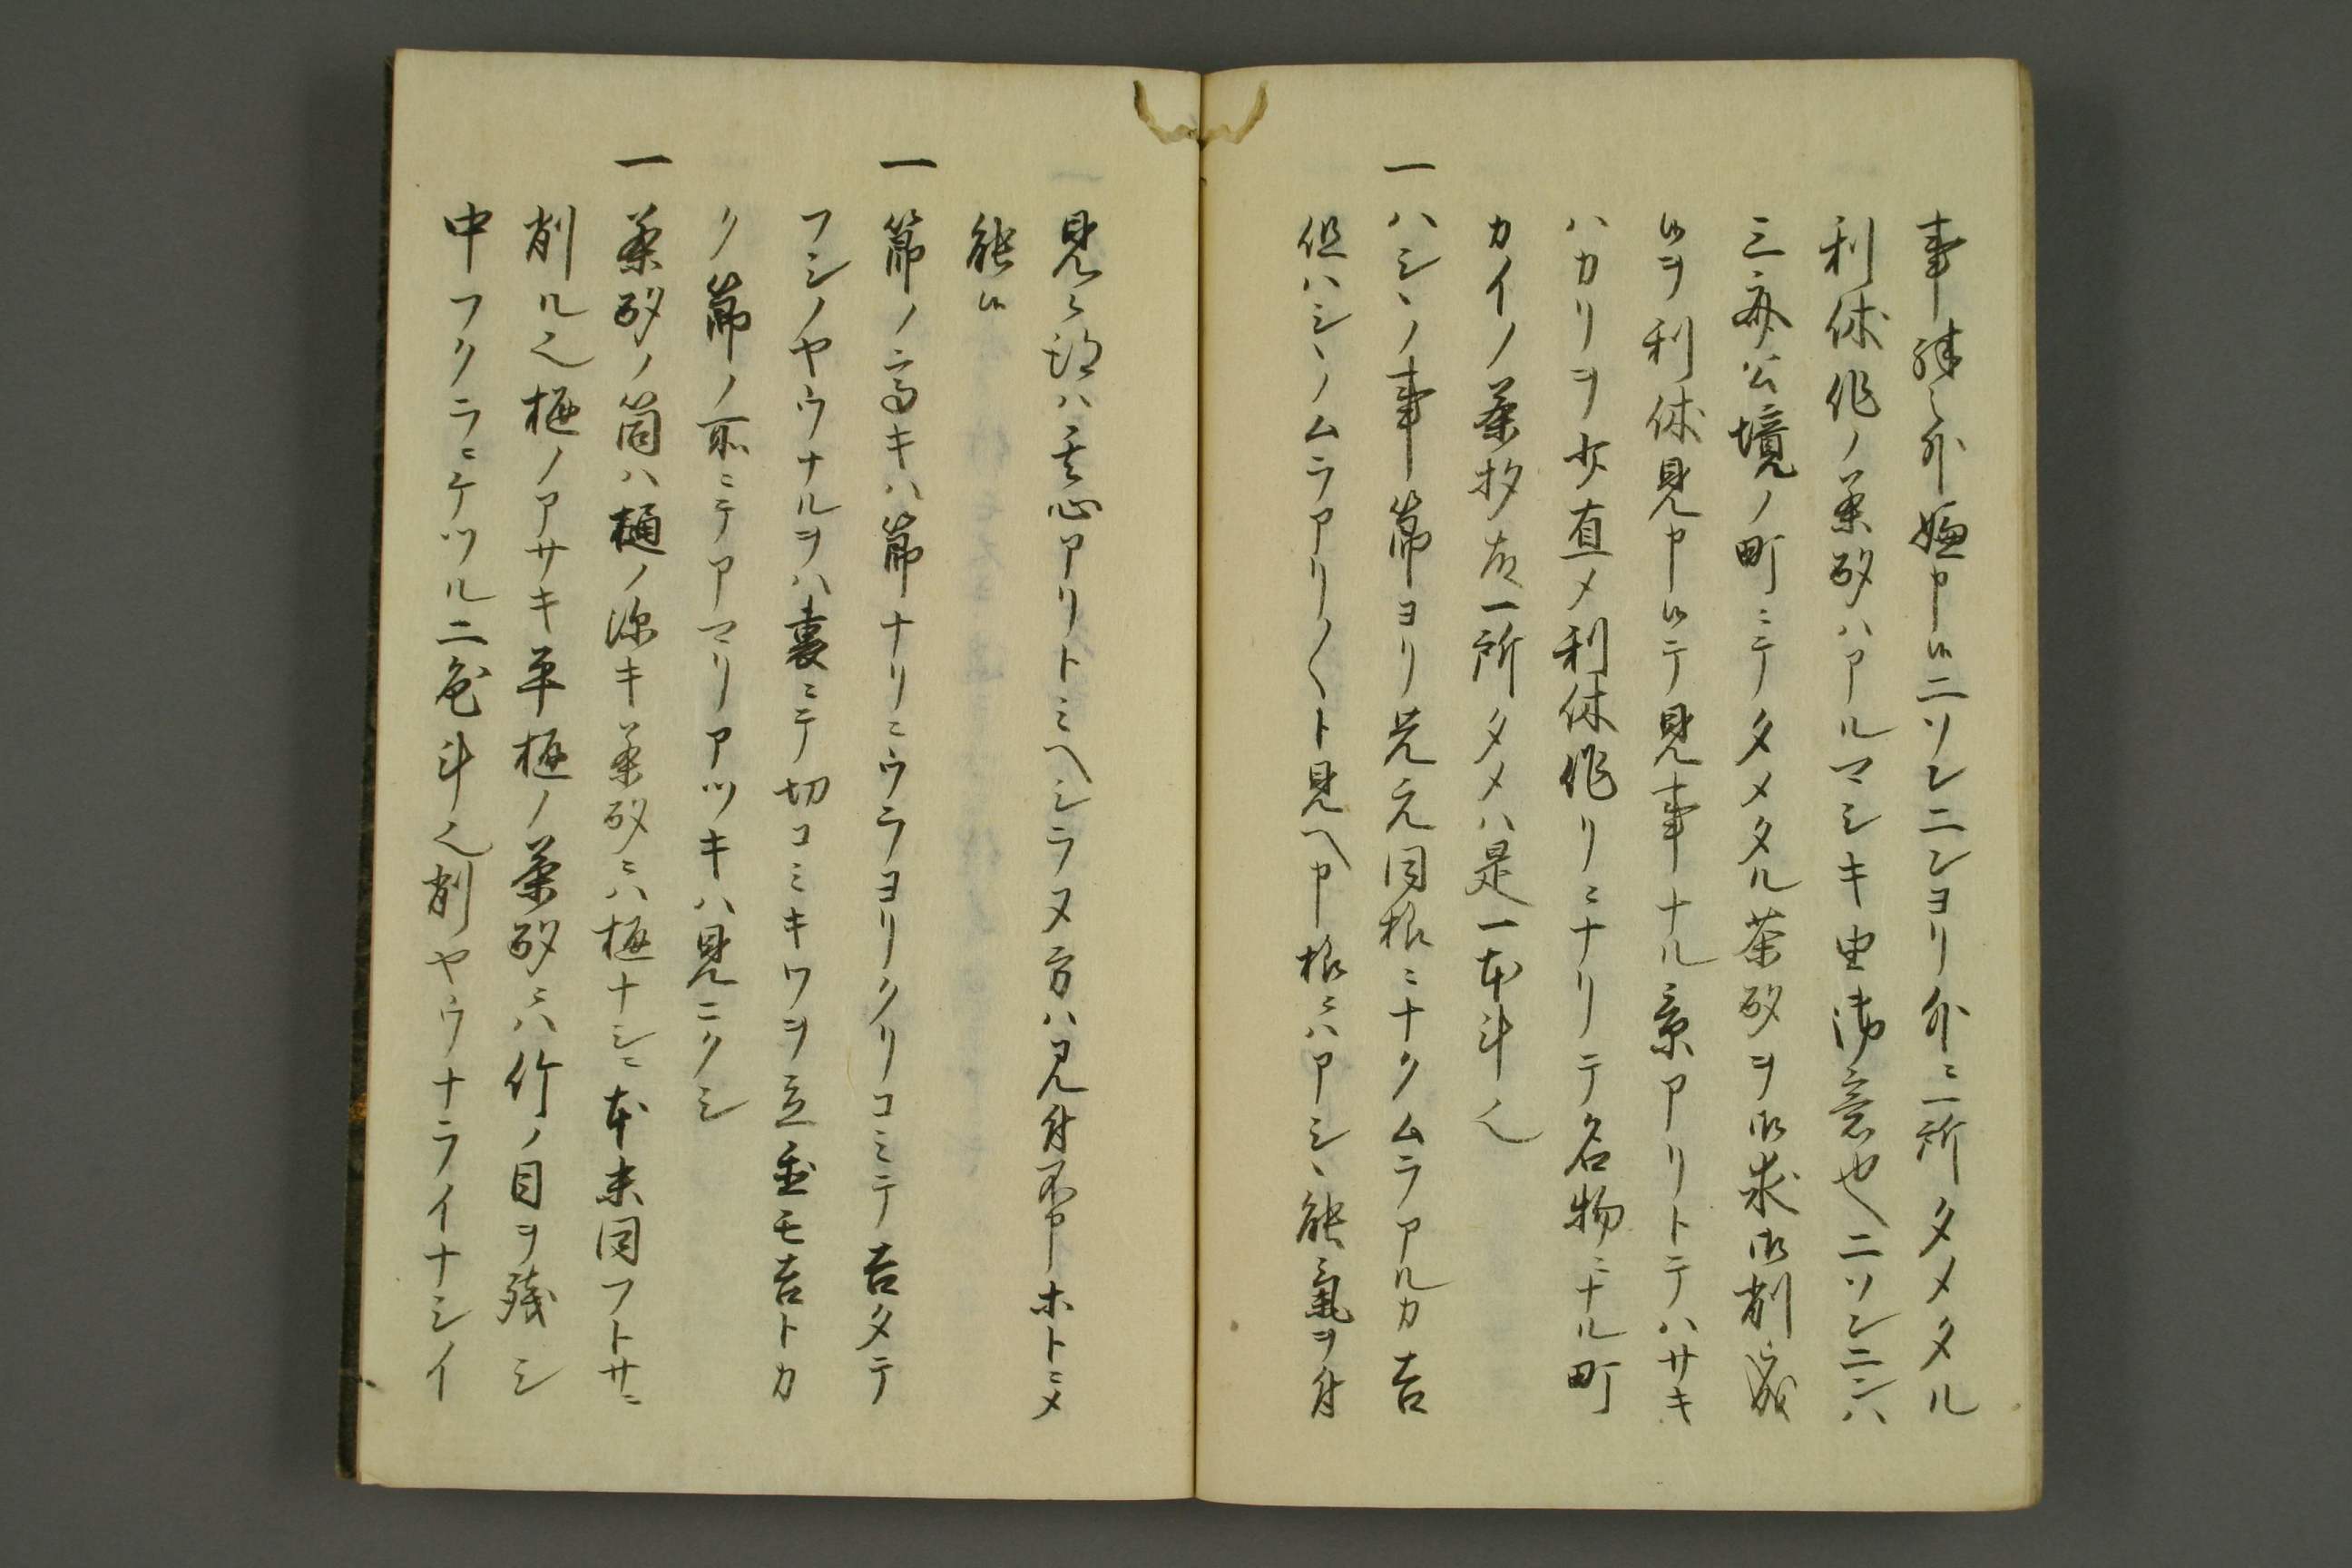 事殊之外嫌申候二ソシ二シヨリ外ニ一所タメタル
利休作ノ茶杓ハアルマシキ由御意也二ソシ二シハ
三斎公境ノ町ニテタメタル茶杓ヲ御求御削
候ヲ利休見申候テ見事ナル景アリトテハサキ
ハカリヲ少直メ利休作リニナリテ名物ニナル町
カイノ茶杓左一所タメハ是一本斗也
一ハシヽノ事節ヨリ先元同様ニナクムラアルカ吉
但ハシヽノムラアリ〳〵ト見ヘ申様ニハアシヽ能氣ヲ付
見候ハ其心アリトミヘシラヌ方ハ見付不申ホトニメ
能候
一節ノ高キハ節ナリニウラヨリクリコミテ吉タテ
フシノヤウナルヲハ裏ニテ切コミキワヲ立並モ吉トカ
ク節ノ所ニテアマリアツキハ見ニクシ
一茶杓ノ筒ハ樋ノ深キ茶杓ニハ樋ナシニ本末同フトサニ
削ル也樋ノアサキ平樋ノ茶杓ニハ竹ノ目ヲ残シ
中フクラニケツル二色斗也削ヤウナライナシイ